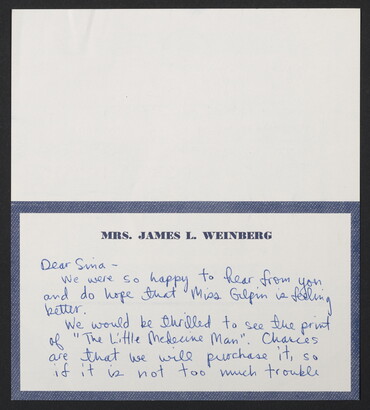 MRS. JAMES L. WEINBERG
Dear Sina -
We were so happy to hear from you
and do hope that Miss Gilpin is feeling
better.
We would be thrilled to see the print
of "The Little Medecine Man". Chances
are that we will purchase it, so
if it is not too much trouble